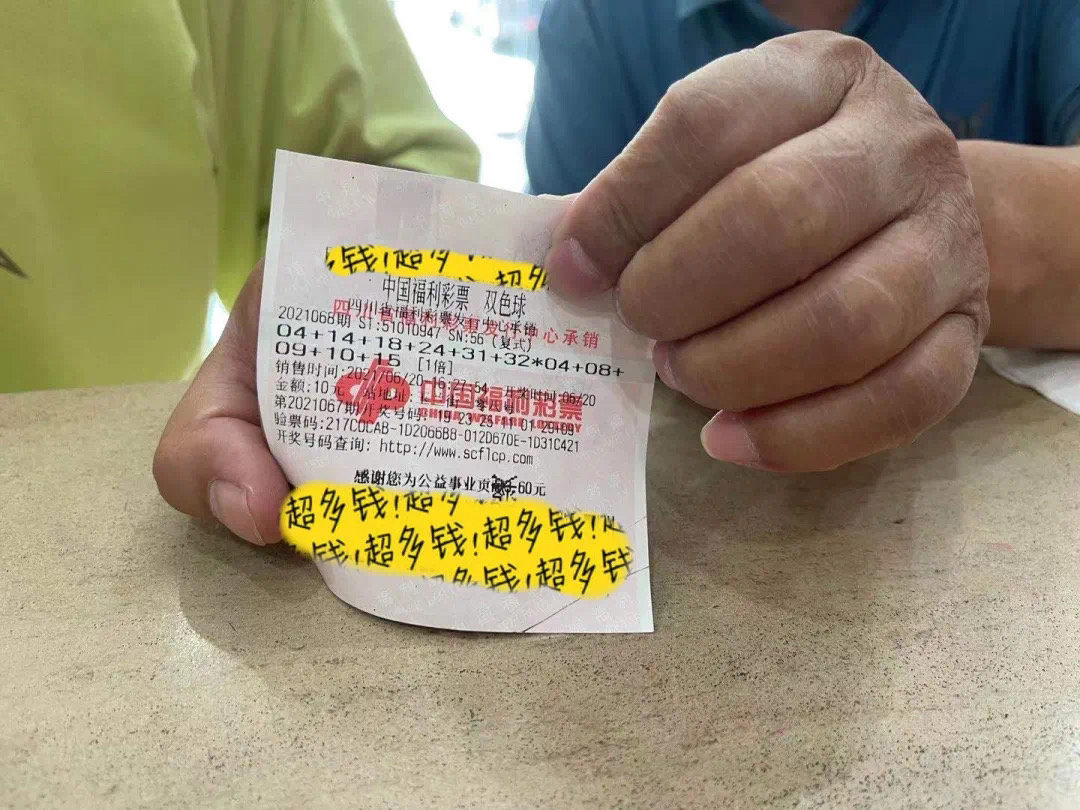 钱!超多
超多
中国福利彩票 双色球
四川省福利彩票发行中心承销
2021068期 S1:51010947 SN:56 (复式)
04+14+18+24+31+32*04+08+
09+10+15 [1倍]
销售时间:2021/06/20 开奖时间:06/20
金额:10元 站地址:
中国福利彩票
CHINA WELFARE LOTTERY
第2021067期开奖号码: 19 23 25 01 29+09
验票码: -1D2066B8-012D670E-1D31C421
开奖号码查询: http://www.scflcp.com
感谢您为公益事业贡献 元
超多钱!超多
钱!超多钱!超多钱!超
多钱!超多钱